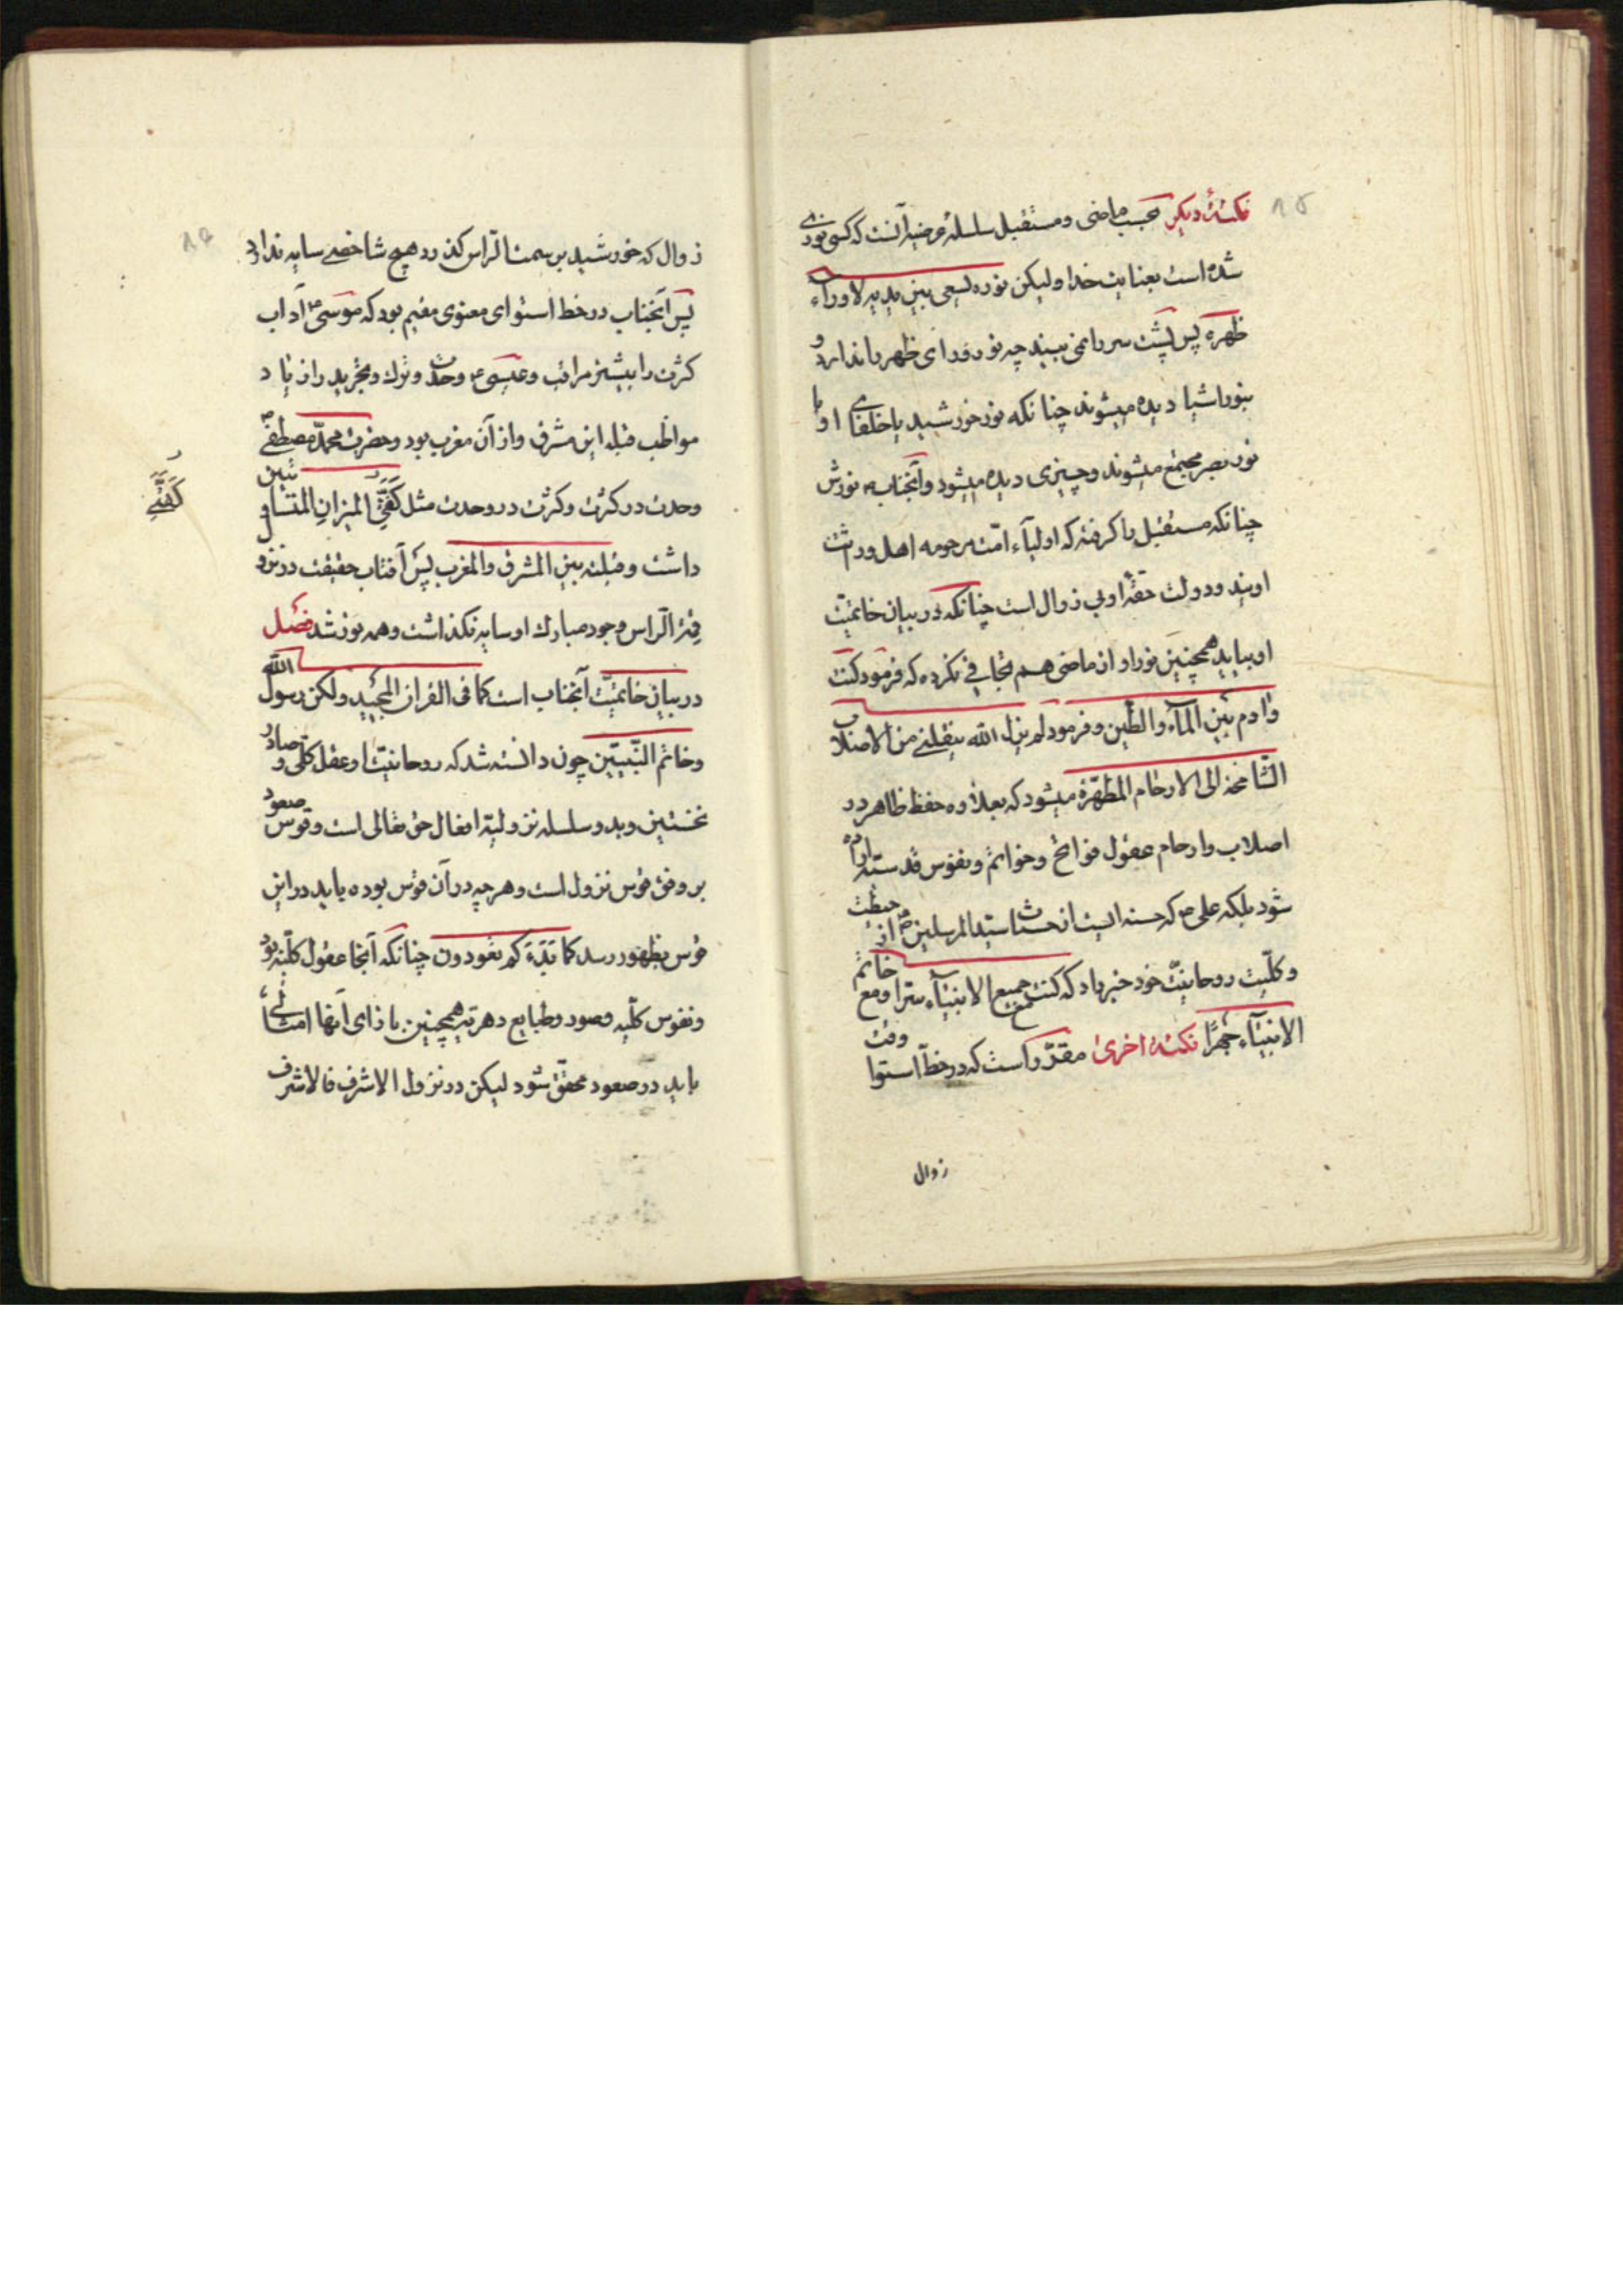 ۱۵
نکتهٔ دیگر بحسب ماضی و مستقبل سلسلهٔ عرضیه آنست که کسی نورانی
شده است بعنایت خدا ولیکن نوره یسعی بین یدیه لا وراء
ظهره پس پشت سر را نمی بیند چه نور ورای ظهر را ندارد و
بنور اشیا دیده میشوند چنانکه نور خورشید یا خلفای او با
نور بصر مجتمع میشوند و چیزی دیده میشود و آنجناب نورش
چنانکه مستقبل را گرفته که اولیاء امت مرحومه اهل وراثت
اویند و دولت حقهٔ او بی زوال است چنانکه در بیان خاتمیّت
او بیاید همچنین نور او از ماضی هم تجافی نکرده که فرمود کنت
وآدم بین المآء والطّین و فرمود لم یزل الله ینقلنی من الاصلاب
الشّامخة الی الارحام المطهّرة میشود که بعلاوه حفظ ظاهر در
اصلاب و ارحام عقول فواتح و خواتم و نفوس قدسیّه اراده
شود بلکه علی ع که حسنه ایست از حسنات سید المرسلین ص از حیطت
و کلّیت روحانیّت خود خبر داد که کنت مع جمیع الانبیآء سرّا و مع خاتم
الانبیآء جهرًا نکتهٔ اخری مقرّر است که در خطّ استوا وقت
زوال
زوال که خورشید بر سمت الرّاس گذرد هیچ شاخصی سایه ندارد
پس آنجناب در خط استوای معنوی مقیم بود که موسی ع آداب
کثرت را بیشتر مراقب و عیسی ع وحدت و ترک و تجرید را زیاد
مواظب قبله این مشرق و از آن مغرب بود و حضرت محمّد مصطفی ص
وحدت در کثرت و کثرت در وحدت مثل کفّتی المیزان المتساویتین
داشت و قبلته بین المشرق والمغرب پس آفتاب حقیقت در نزو
قمّة الرّاس وجود مبارک او سایه نگذاشت و همه نور شد فصل
در بیان خاتمیّت آنجناب است کما فی القران المجید ولکن رسول الله
و خاتم النّبیّین چون دانسته شد که روحانیّت او عقل کلّی و صادر
نخستین و بدو سلسله نزولیّه افعال حق تعالی است و قوس صعود
بر وفق قوس نزول است و هر چه در آن قوس بوده باید در این
قوس بظهور رسد کما بدءکم تعودون چنانکه آنجا عقول کلّیّه بود
و نفوس کلّیه و صور و طبایع دهریّه همچنین باذای آنها امثالی
باید در صعود محقّق شود لیکن در نزول الاشرف فالاشرف
کفّتی